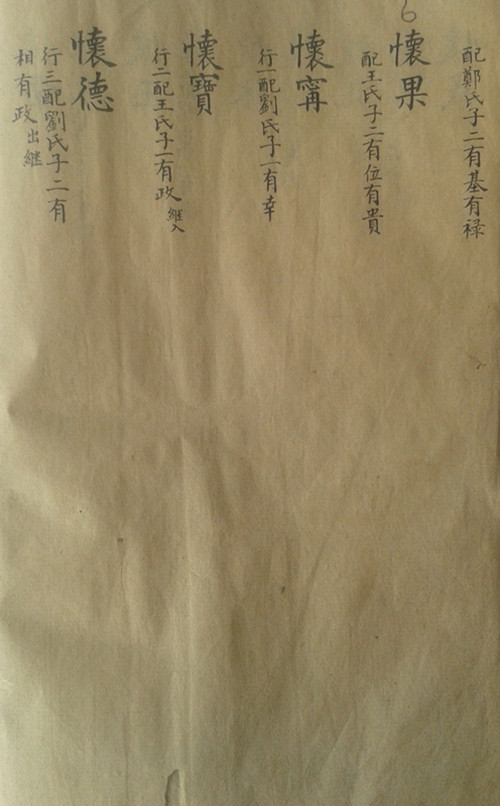 6
配鄭氏子二有基有禄
懷果
配王氏子二有位有貴
懷甯
行一配劉氏子一有幸
懷寶
行二配王氏子一有政繼入
懷德
行三配劉氏子二有
相有政出繼